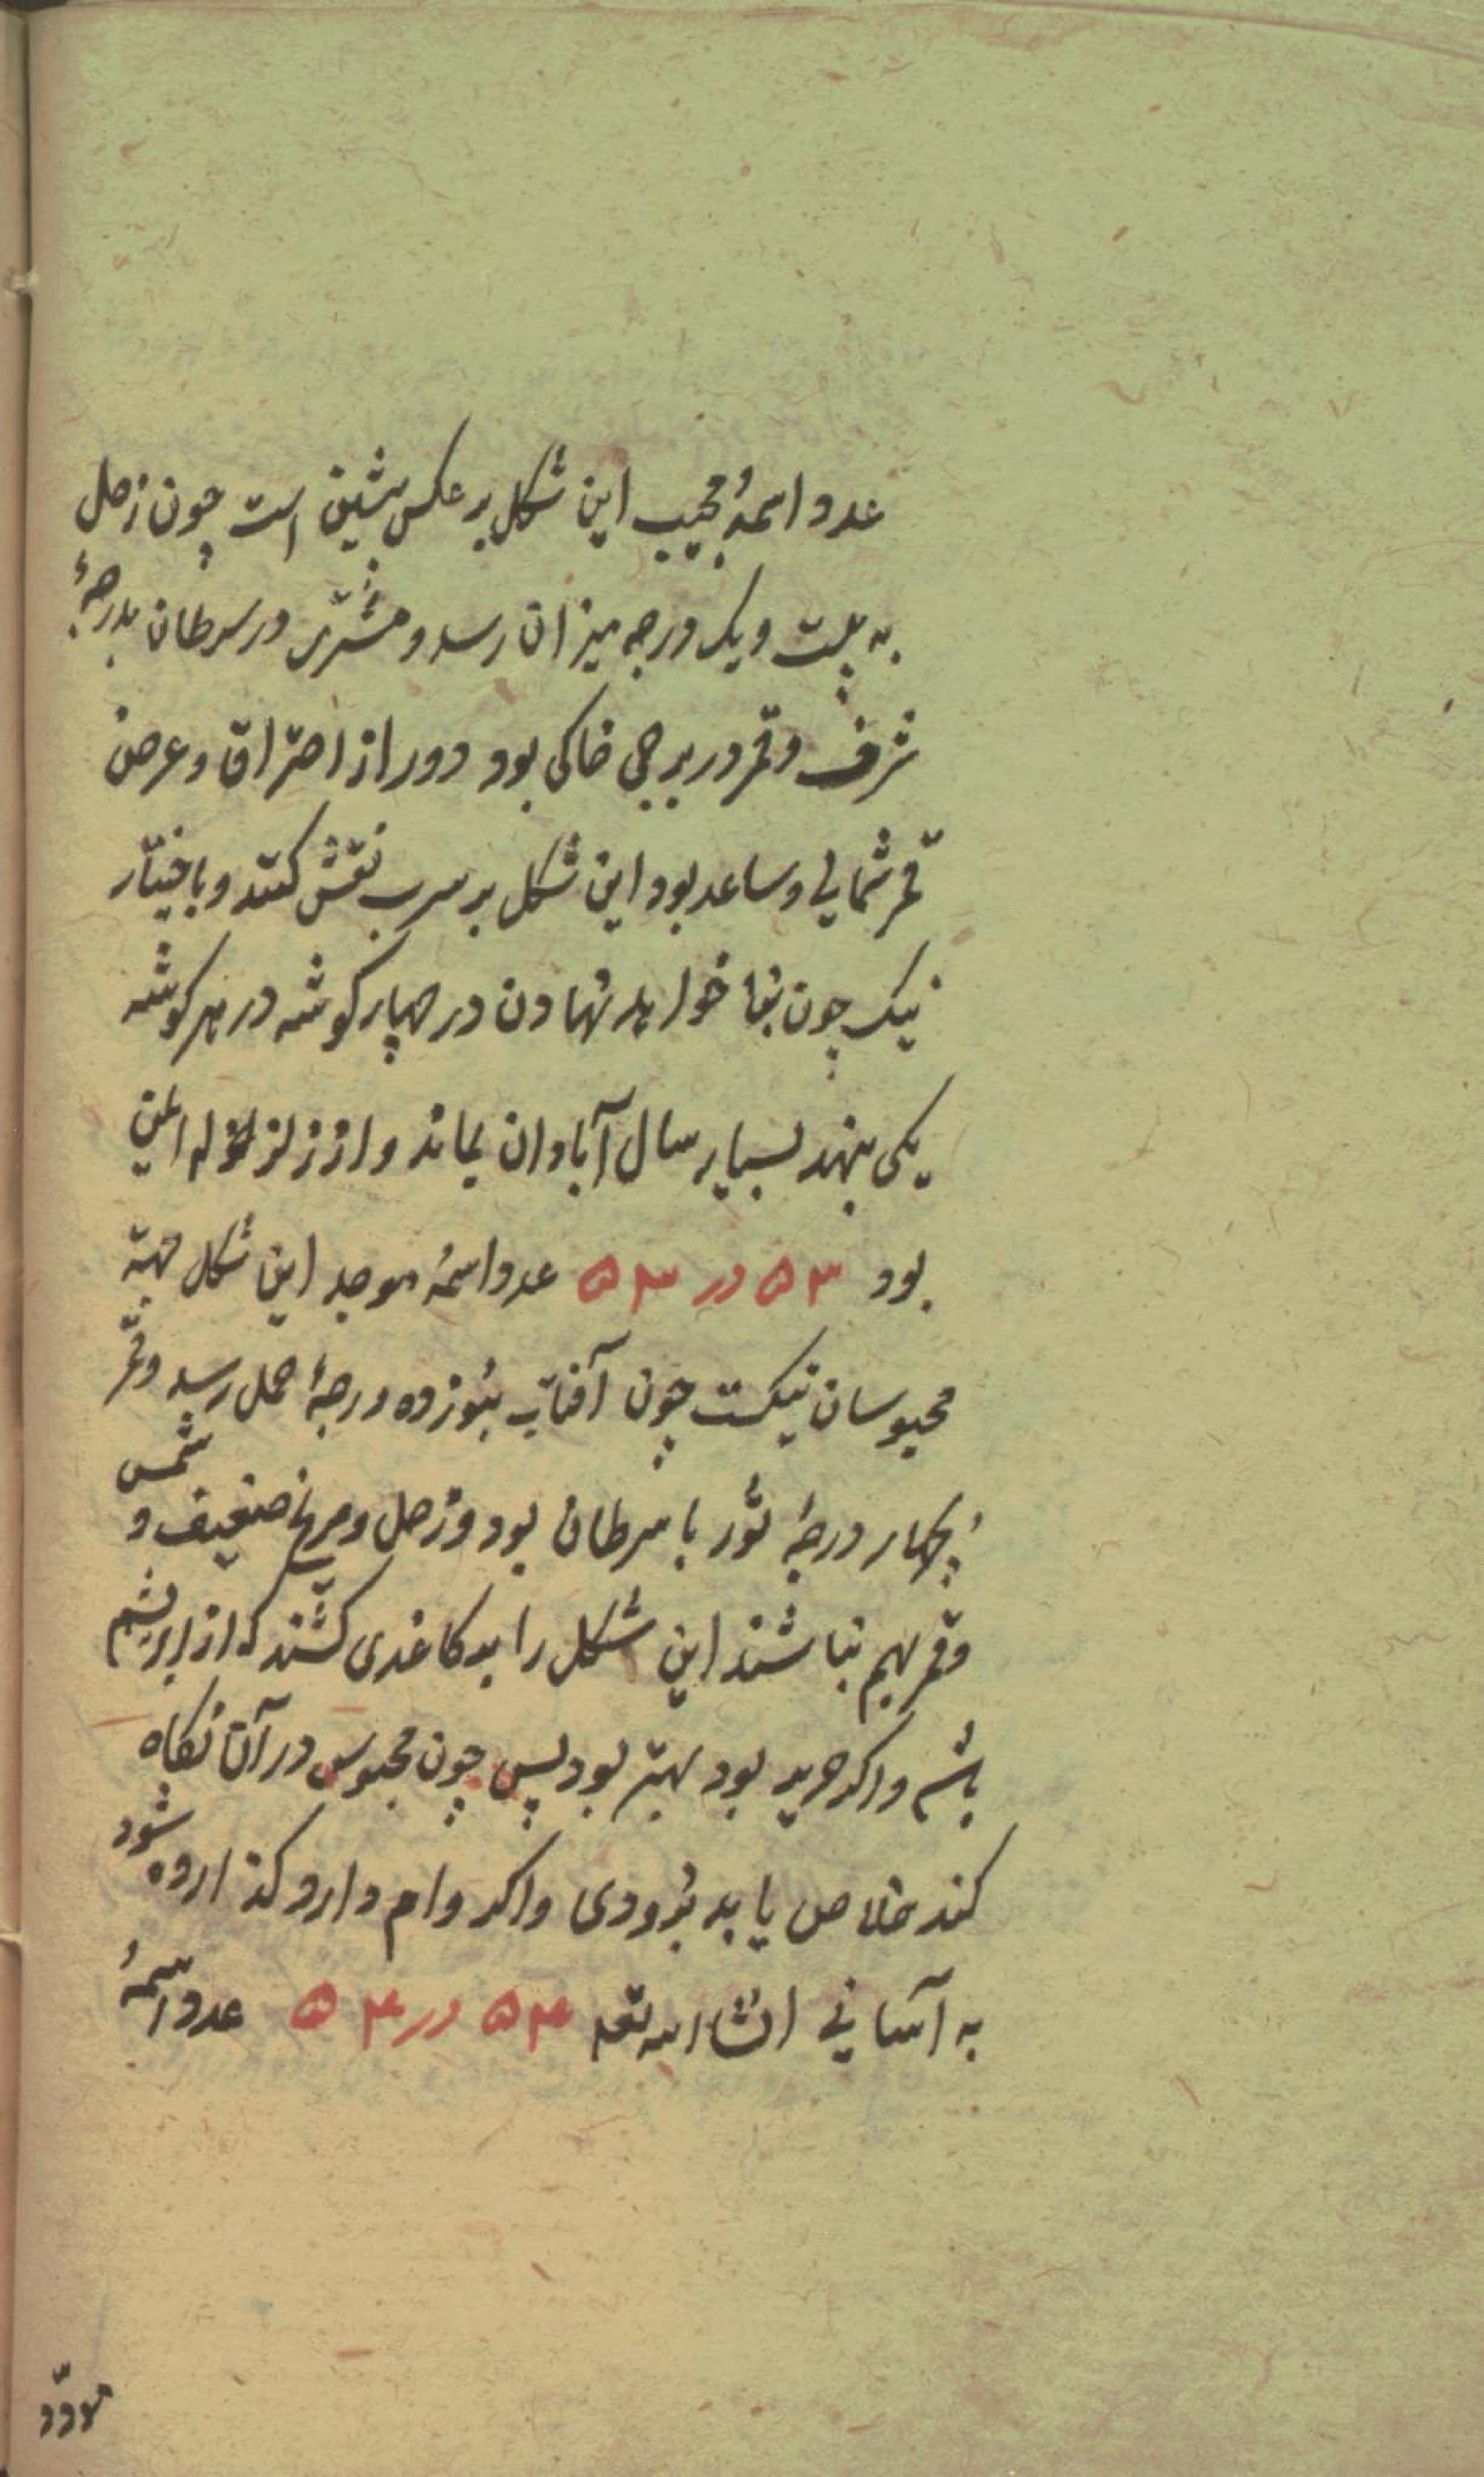 عدد اسمهٔ مجیب این شکل بر عکس پیشین است چون زحل
به بیست ویک درجه میزان رسد و مشتری در سرطان بدرجهٔ
شرف وقمر در برجی خاکی بود دور از احتراق وعرض
قمر شمالی وساعد بود این شکل بر سرب نقش کنند وباختیار
نیک چون بنا خواهد نهادن در چهار کوشه در هر کوشه
یکی بنهد بسیار سال آبادان بماند واز زلزله ایمن
بود ۵۳ در ۵۳ عدد اسمهٔ موجد این شکل جهته
محبوسان نیکست چون آفتاب بنوزده درجهٔ حمل رسد وقمر
بچهار درجهٔ ثور با سرطان بود وزحل ومریخ ضعیف و شمس
وقمر بهم نباشند این شکل را بر کاغدی کشند که از ابریشم
باشد واکر حریر بود بهتر بود پس چون محبوس در آن نکاه
کند خلاص یابد بزودی واکر وام دارد کذارده شود
به آسانی انشاالله تعه ۵۴ در ۵۴ عدد اسمهٔ